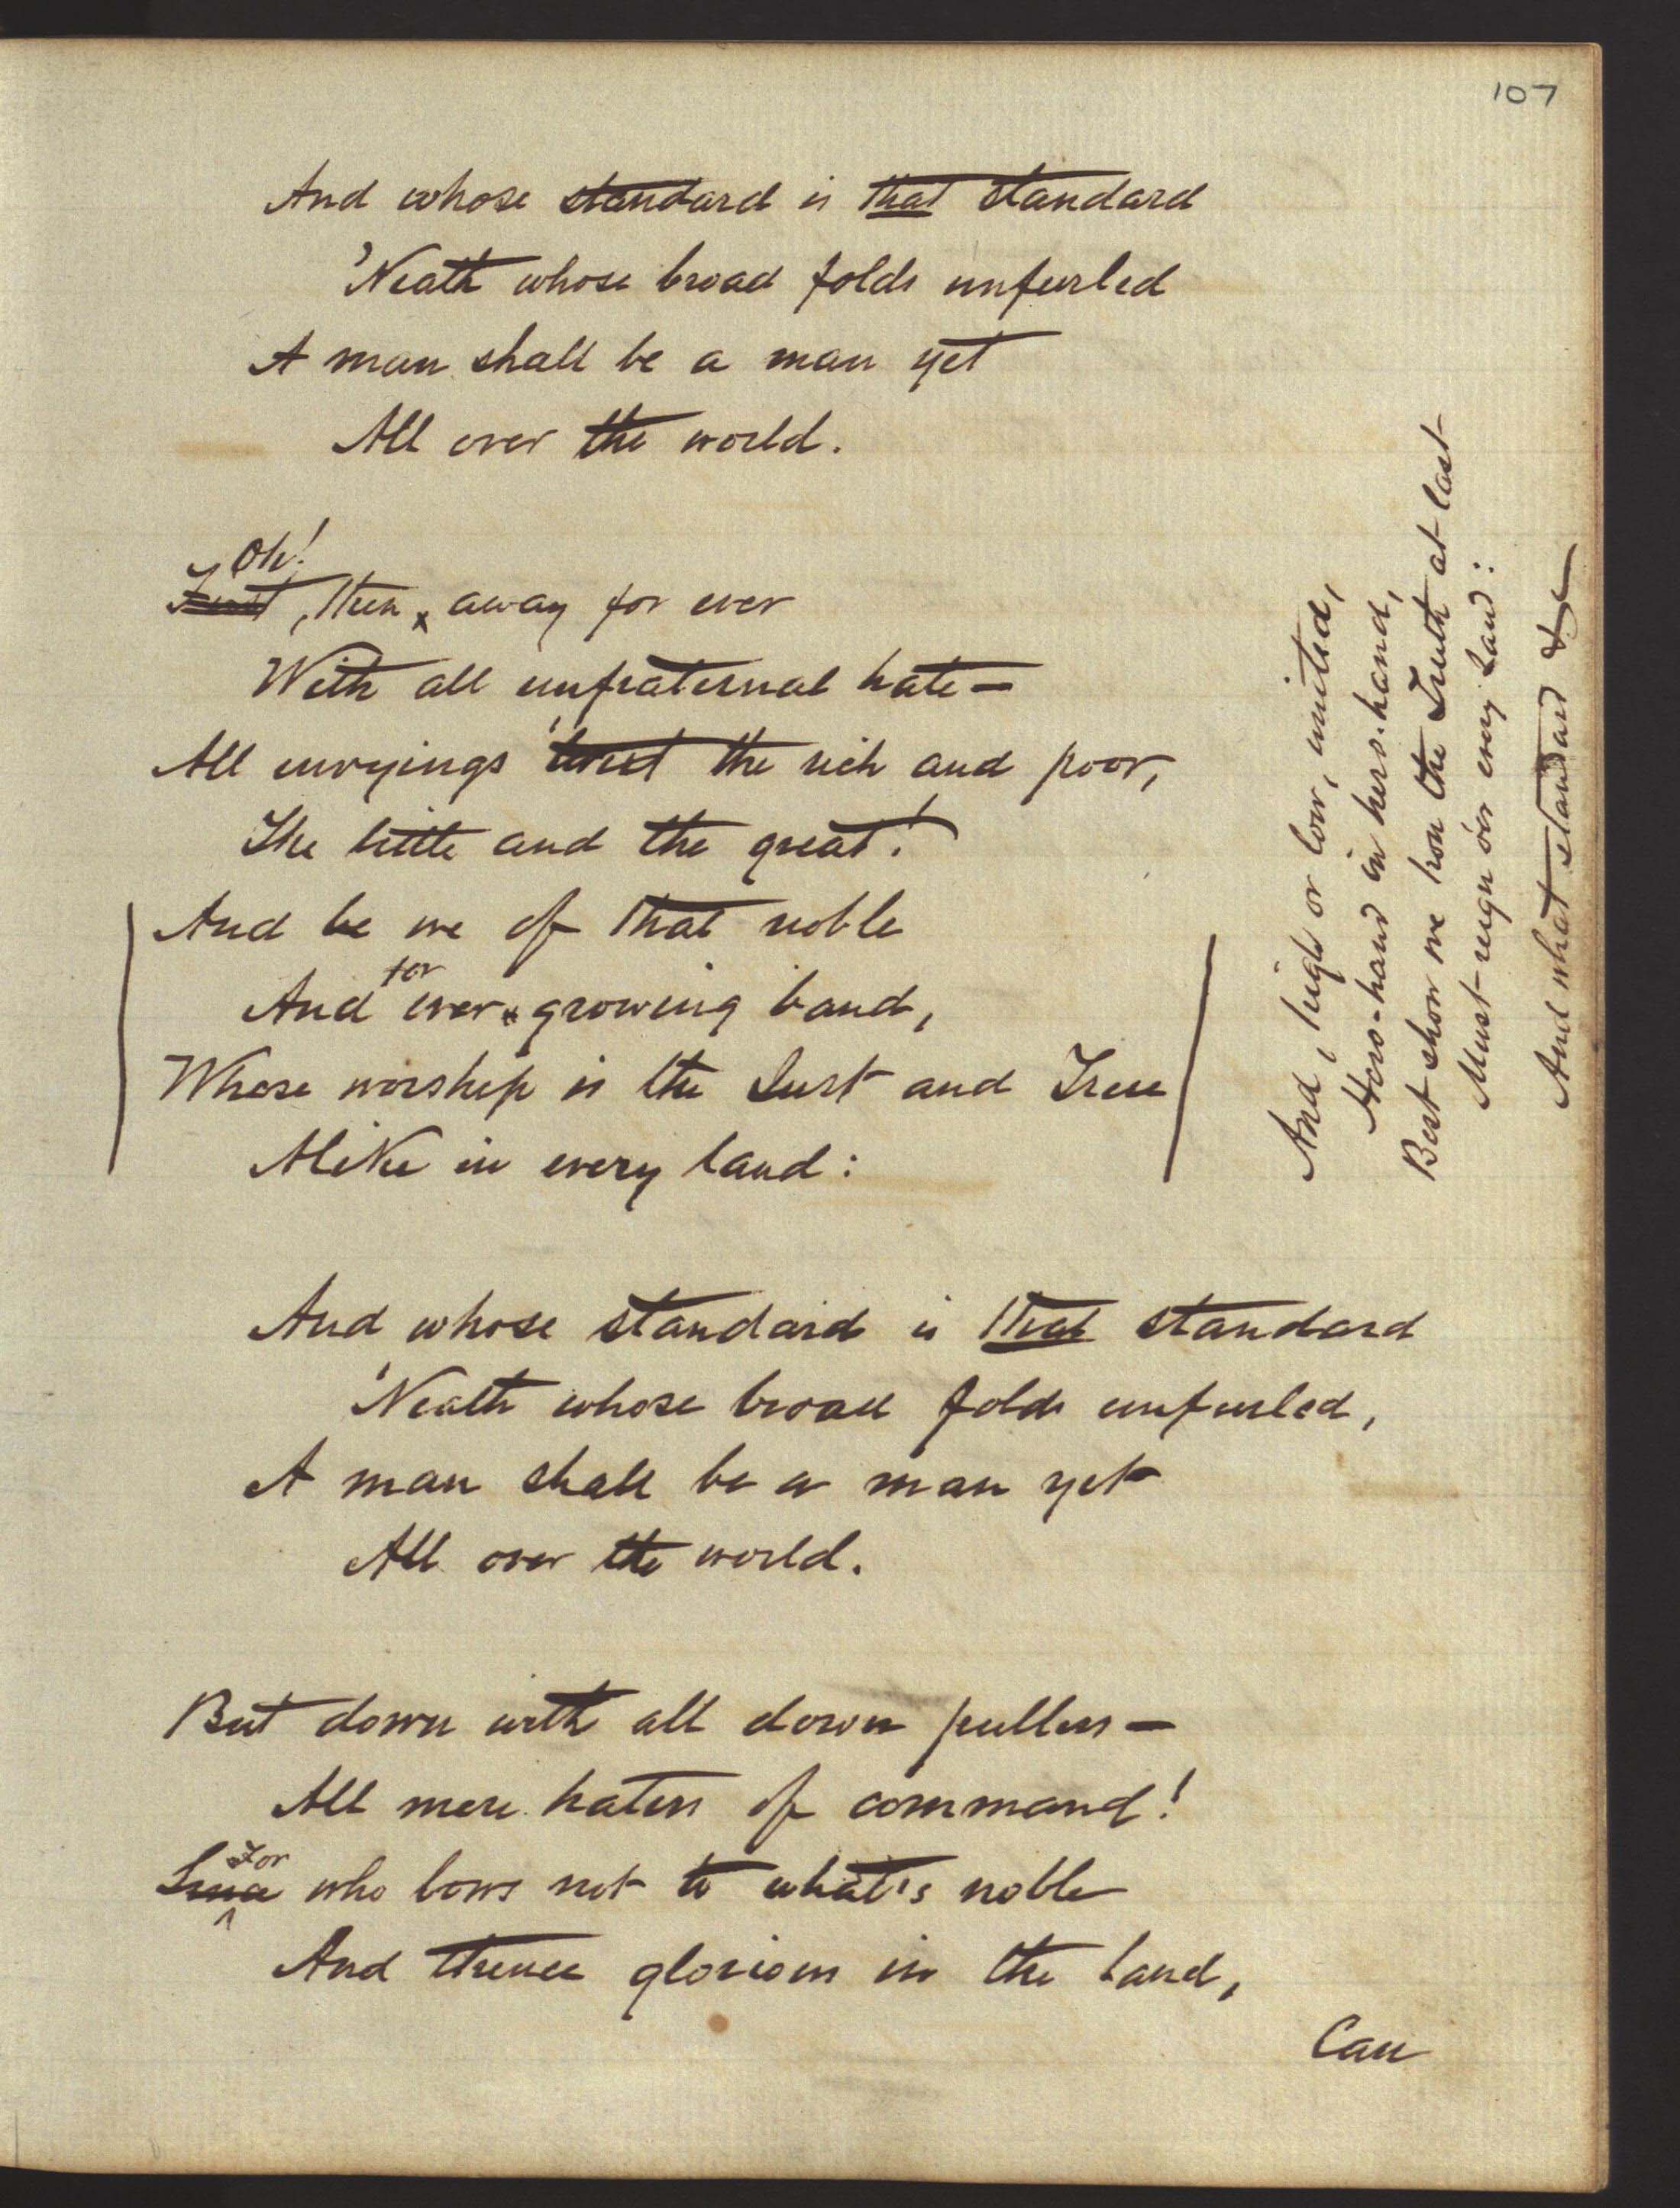 107
And whose standard is that standard
'Neath whose broad folds unfurled
A man shall be a man yet
All over the world.
Oh!
First, then, away for ever
With all unfraternal hate—
All envyings 'twixt the rich and poor,
The little and the great!
And be we of that noble
for
And ever growing band,
Whose worship is the Just and True
Alike in every land:
And whose standard is that standard
'Neath whose broad folds unfurled,
A man shall be a man yet
All over the world.
But down with all down pullers—
All mere haters of command!
For
Since who bows not to what's noble
And thence glorious in the land,
Can
And, high or low, united,
Hero-hand in hero-hand,
Best show we how the Truth at last
Must reign o'er every land:
And what standard &c